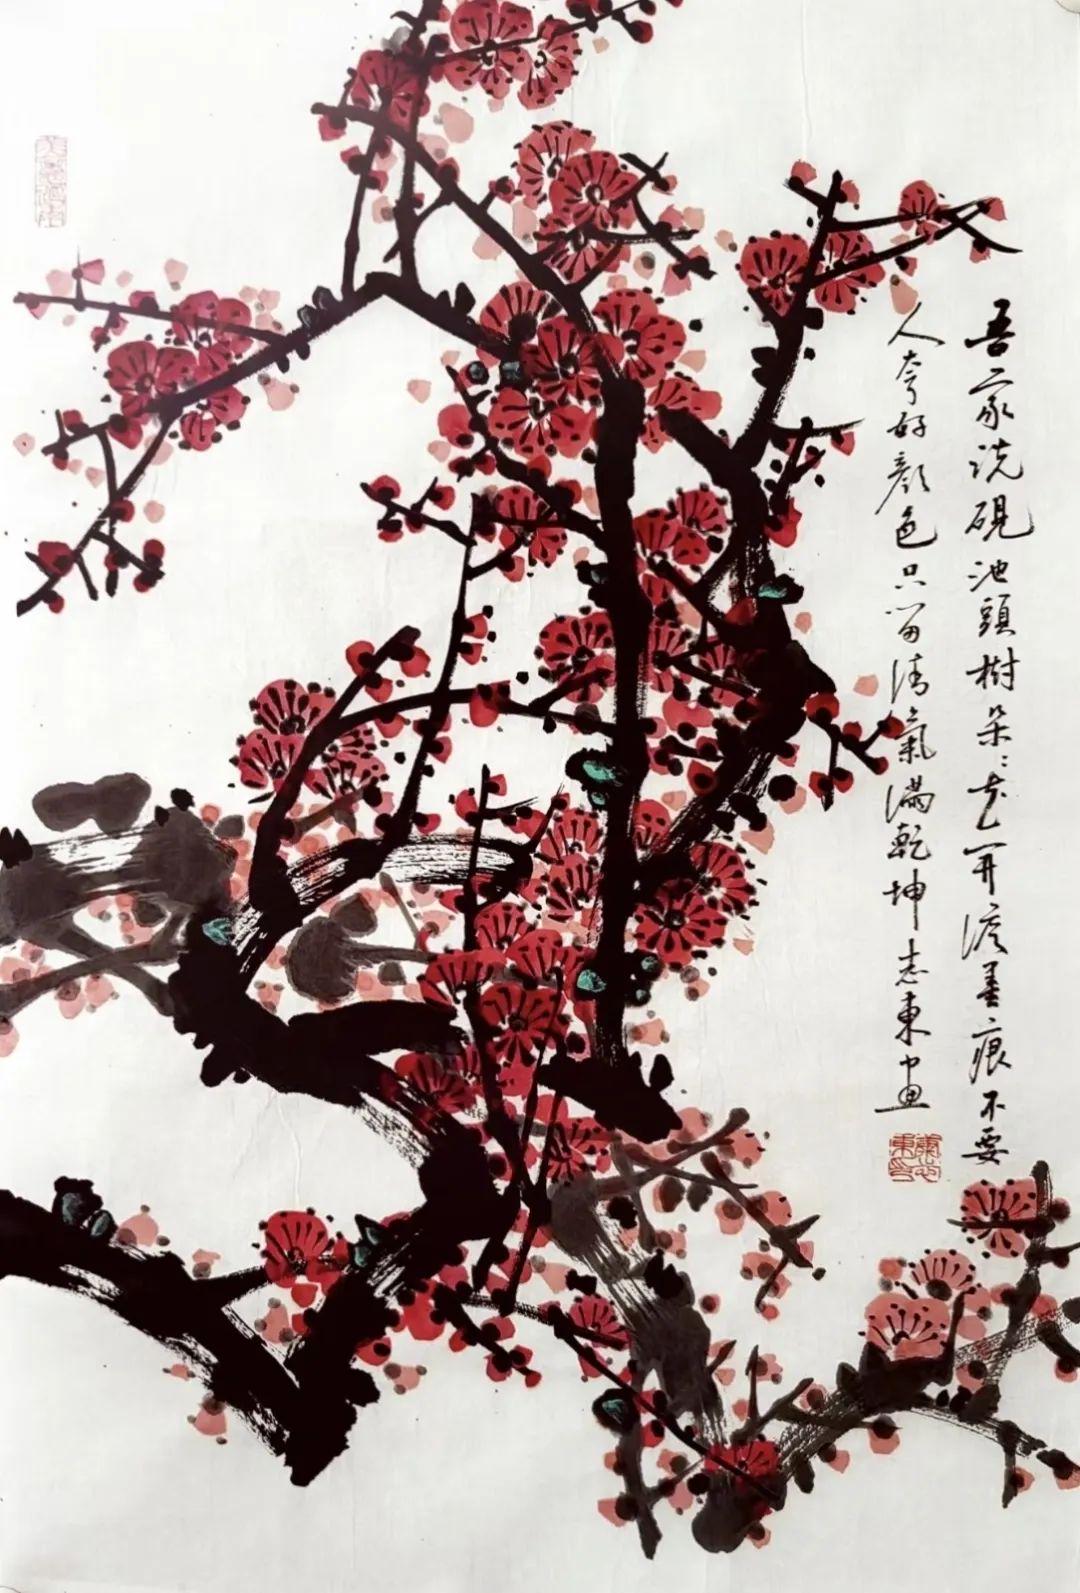 吾家洗硯池頭樹朵〻花開淡墨痕不要
人夸好顏色只留清氣滿乾坤志東畫